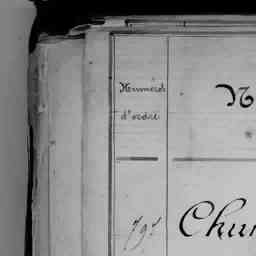 Numéros
d'ordre
N
797
Chu